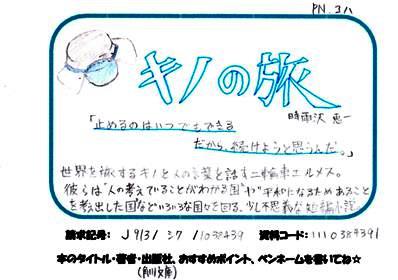 PN.ヨハ
キノの旅
時雨沢 恵一
「止めるのはいつでもできる
だから、続けようと思うんだ。」
世界を旅するキノと人の言葉を話す二輪車エルメス。
彼らは"人の考えていることがわかる国"や"平和になるためあること
を考え出した国"などいろいろな国々を回る、少し不思議な短編小説。
請求記号: J 913/ シク / 1038439 資料コード: 1110389391
本のタイトル・著者・出版社、おすすめポイント、ペンネームを書いてね☆
(角川文庫)